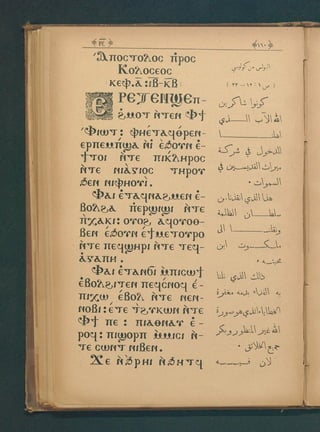 ⲣ̅ⲝ̅ ١٦٠
Ⲁ̀ⲡⲟⲥⲧⲟⲗⲟⲥ ⲡ̀ⲣⲟⲥ
Ⲕⲟⲗⲟⲥⲉⲟⲥ
ⲕⲉⲫ.ⲁ̅: ⲓ̅ⲃ̅-ⲕ̅ⲃ̅
ⲈⲢⲈⲦⲈⲚϢⲈⲡ-
ϩⲙⲟⲧ ⲛ̀ⲧⲉⲛ Ⲫϯ
Ⲫⲓⲱⲧ: ⲫⲏⲉ̀ⲧⲁϥⲑⲣⲉⲛ-
ⲉⲣⲡⲉⲙⲡ̀ϣⲁ ⲛⲓ ⲉ̀ϧⲟⲩⲛ ⲉ̀-
ϯⲧⲟⲓ ⲛ̀ⲧⲉ ⲡⲓⲕⲗⲏⲣⲟⲥ
ⲛ̀ⲧⲉ ⲛⲓⲁ̀ⲅⲓⲟⲥ ⲧⲏⲣⲟⲩ
ϧⲉⲛ ⲛⲓⲫⲏⲟⲩⲓ̀.
Ⲫⲁⲓ ⲉ̀ⲧⲁϥⲛⲁϩⲙⲉⲛ ⲉ̀-
ⲃⲟⲗϩⲁ ⲡⲉⲣϣⲓϣⲓ ⲛ̀ⲧⲉ
ⲡ̀ⲭⲁⲕⲓ: ⲟⲩⲟϩ ⲁϥⲟⲩⲟⲑ-
ⲃⲉⲛ ⲉ̀ϧⲟⲩⲛ ⲉ̀ϯⲙⲉⲧⲟⲩⲣⲟ
ⲛ̀ⲧⲉ ⲡⲉϥϣⲏⲣⲓ ⲛ̀ⲧⲉ ⲧⲉϥ-
ⲁ̀ⲅⲁⲡⲏ.
Ⲫⲁⲓ ⲉ̀ⲧⲁⲛϭⲓ ⲙ̀ⲡⲓⲥⲱϯ
ⲉ̀ⲃⲟⲗϩⲓⲧⲉⲛ ⲡⲉϥⲥ̀ⲛⲟϥ ⲉ̀-
ⲡⲓⲭⲱ ⲉ̀ⲃⲟⲗ ⲛ̀ⲧⲉ ⲛⲉⲛ-
ⲛⲟⲃⲓ: ⲉ̀ⲧⲉ ⲧ̀ϩⲩⲕⲱⲛ ⲛ̀ⲧⲉ
Ⲫϯ ⲡⲉ: ⲡⲓⲁⲑⲛⲁⲩ ⲉ̀-
ⲣⲟϥ: ⲡⲓϣⲟⲣⲡ ⲙ̀ⲙⲓⲥⲓ ⲛ̀-
ⲧⲉ ⲥⲱⲛⲧ ⲛⲓⲃⲉⲛ.
Ϫⲉ ⲛ̀ϩ̀ⲣⲏⲓ ⲛ̀ϧⲏⲧϥ
البولس من كولوسي
كونوا شاكرين
الله الآب الـذي
اهلنا
للدخول في شركة
ميراث القديسين في
السموات.
هذا الذي انقذنا من
سلطان الظلمة
ونقلنا الى
ملكوت ابن
محبته.
ذلك الذي نلنا
به الفداء بدمه مغفرة
الخطايا الذي هو صورة
الله غير المنظور وبكر
جميع الخلائق.
لان فيـه